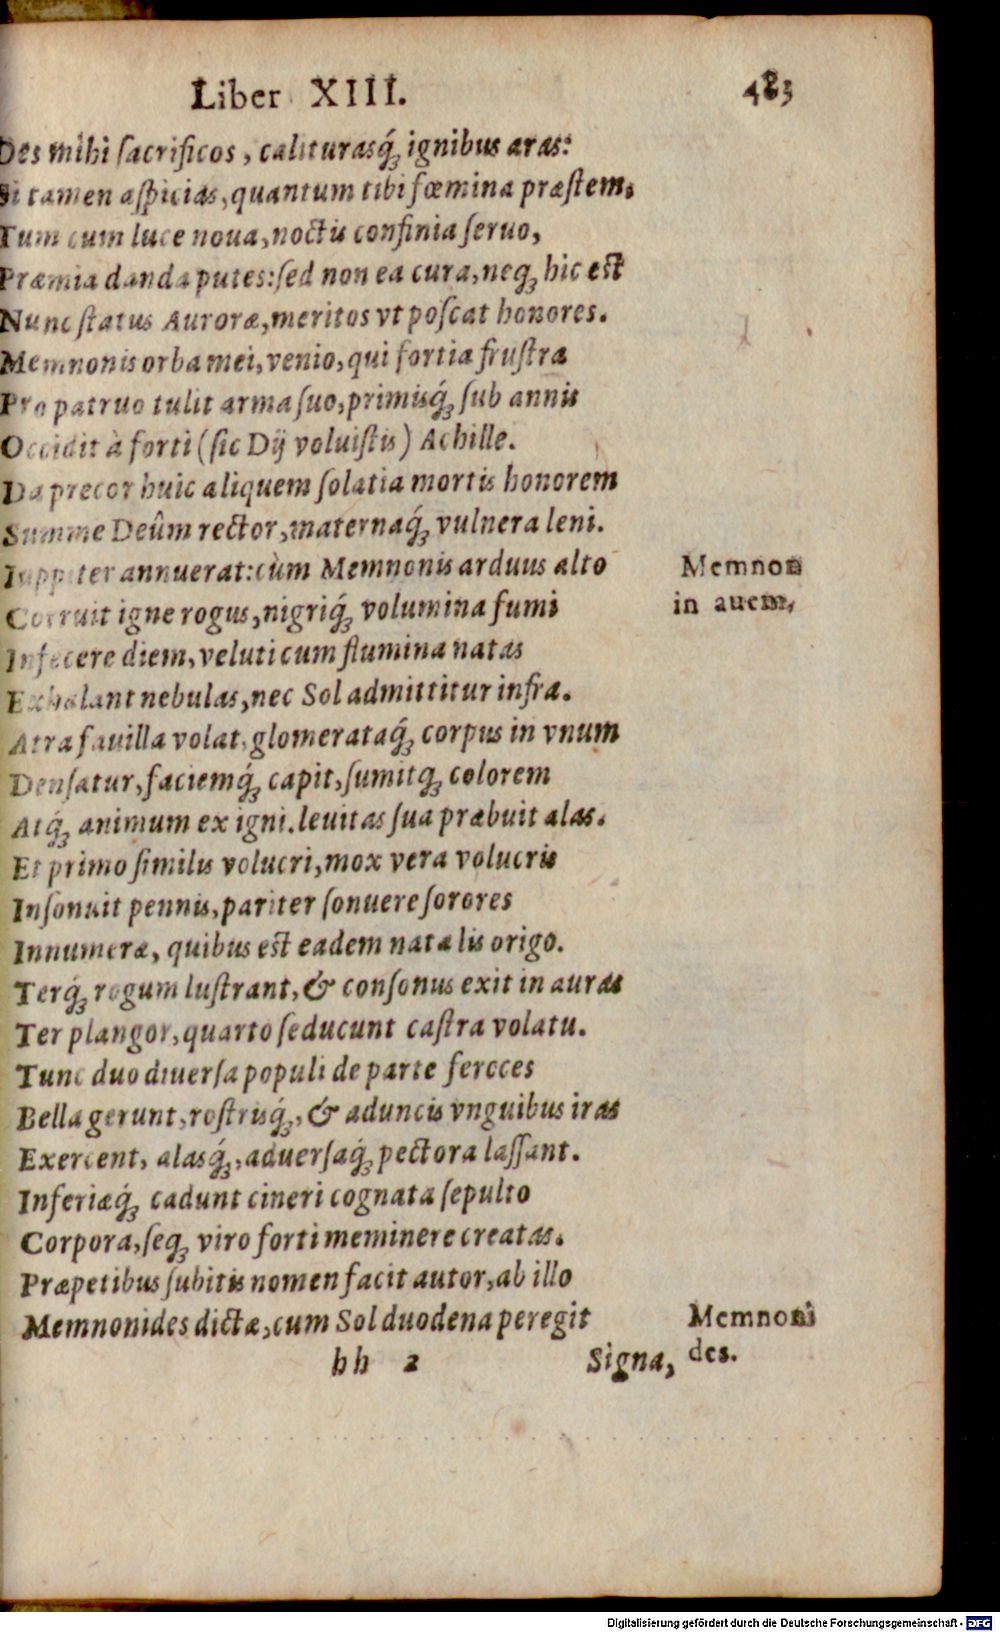 Liber XIII. 483
Des mihi ſacrificos, calituraſq́ꝫ ignibus aras:
Si tamen aſpicias, quantum tibi fœmina præſtem,
Tum cum luce noua, noctis confinia ſeruo,
Præmia danda putes: ſed non ea cura, neqꝫ hic est
Nunc ſtatus Auroræ, meritos vt poſcat honores.
Memnonis orba mei, venio, qui fortia fruſtra
Pro patruo tulit arma ſuo, primisq́ꝫ ſub annis
Occidit à forti (ſic Dij voluiſtis) Achille.
Da precor huic aliquem ſolatia mortis honorem
Summe Deûm rector, maternaq́ꝫ vulnera leni.
Iuppiter annuerat: cùm Memnonis arduus alto
Memnon
Corruit igne rogus, nigriq́ꝫ volumina fumi
in auem,
Infecere diem, veluti cum flumina natas
Exhalant nebulas, nec Sol admittitur infra.
Atra fauilla volat, glomerataq́ꝫ corpus in vnum
Denſatur, faciemq́ꝫ capit, ſumitqꝫ colorem
Atq́ꝫ animum ex igni. leuitas ſua præbuit alas.
Et primo ſimilis volucri, mox vera volucris
Inſonuit pennis, pariter ſonuere ſorores
Innumeræ, quibus est eadem natalis origo.
Terq́ꝫ rogum luſtrant, & conſonus exit in auras
Ter plangor, quarto ſeducunt caſtra volatu.
Tunc duo diuerſa populi de parte feroces
Bella gerunt, roſtrisq́ꝫ, & aduncis vnguibus iras
Exercent, alasq́ꝫ, aduerſaq́ꝫ pectora laſſant.
Inferiæq́ꝫ cadunt cineri cognata ſepulto
Corpora, ſeqꝫ viro forti meminere creatas.
Præpetibus ſubitis nomen facit autor, ab illo
Memnonides dictæ, cum Sol duodena peregit
Memnoni
des.
hh 2 Signa,
Digitalisierung gefördert durch die Deutsche Forschungsgemeinschaft - DFG